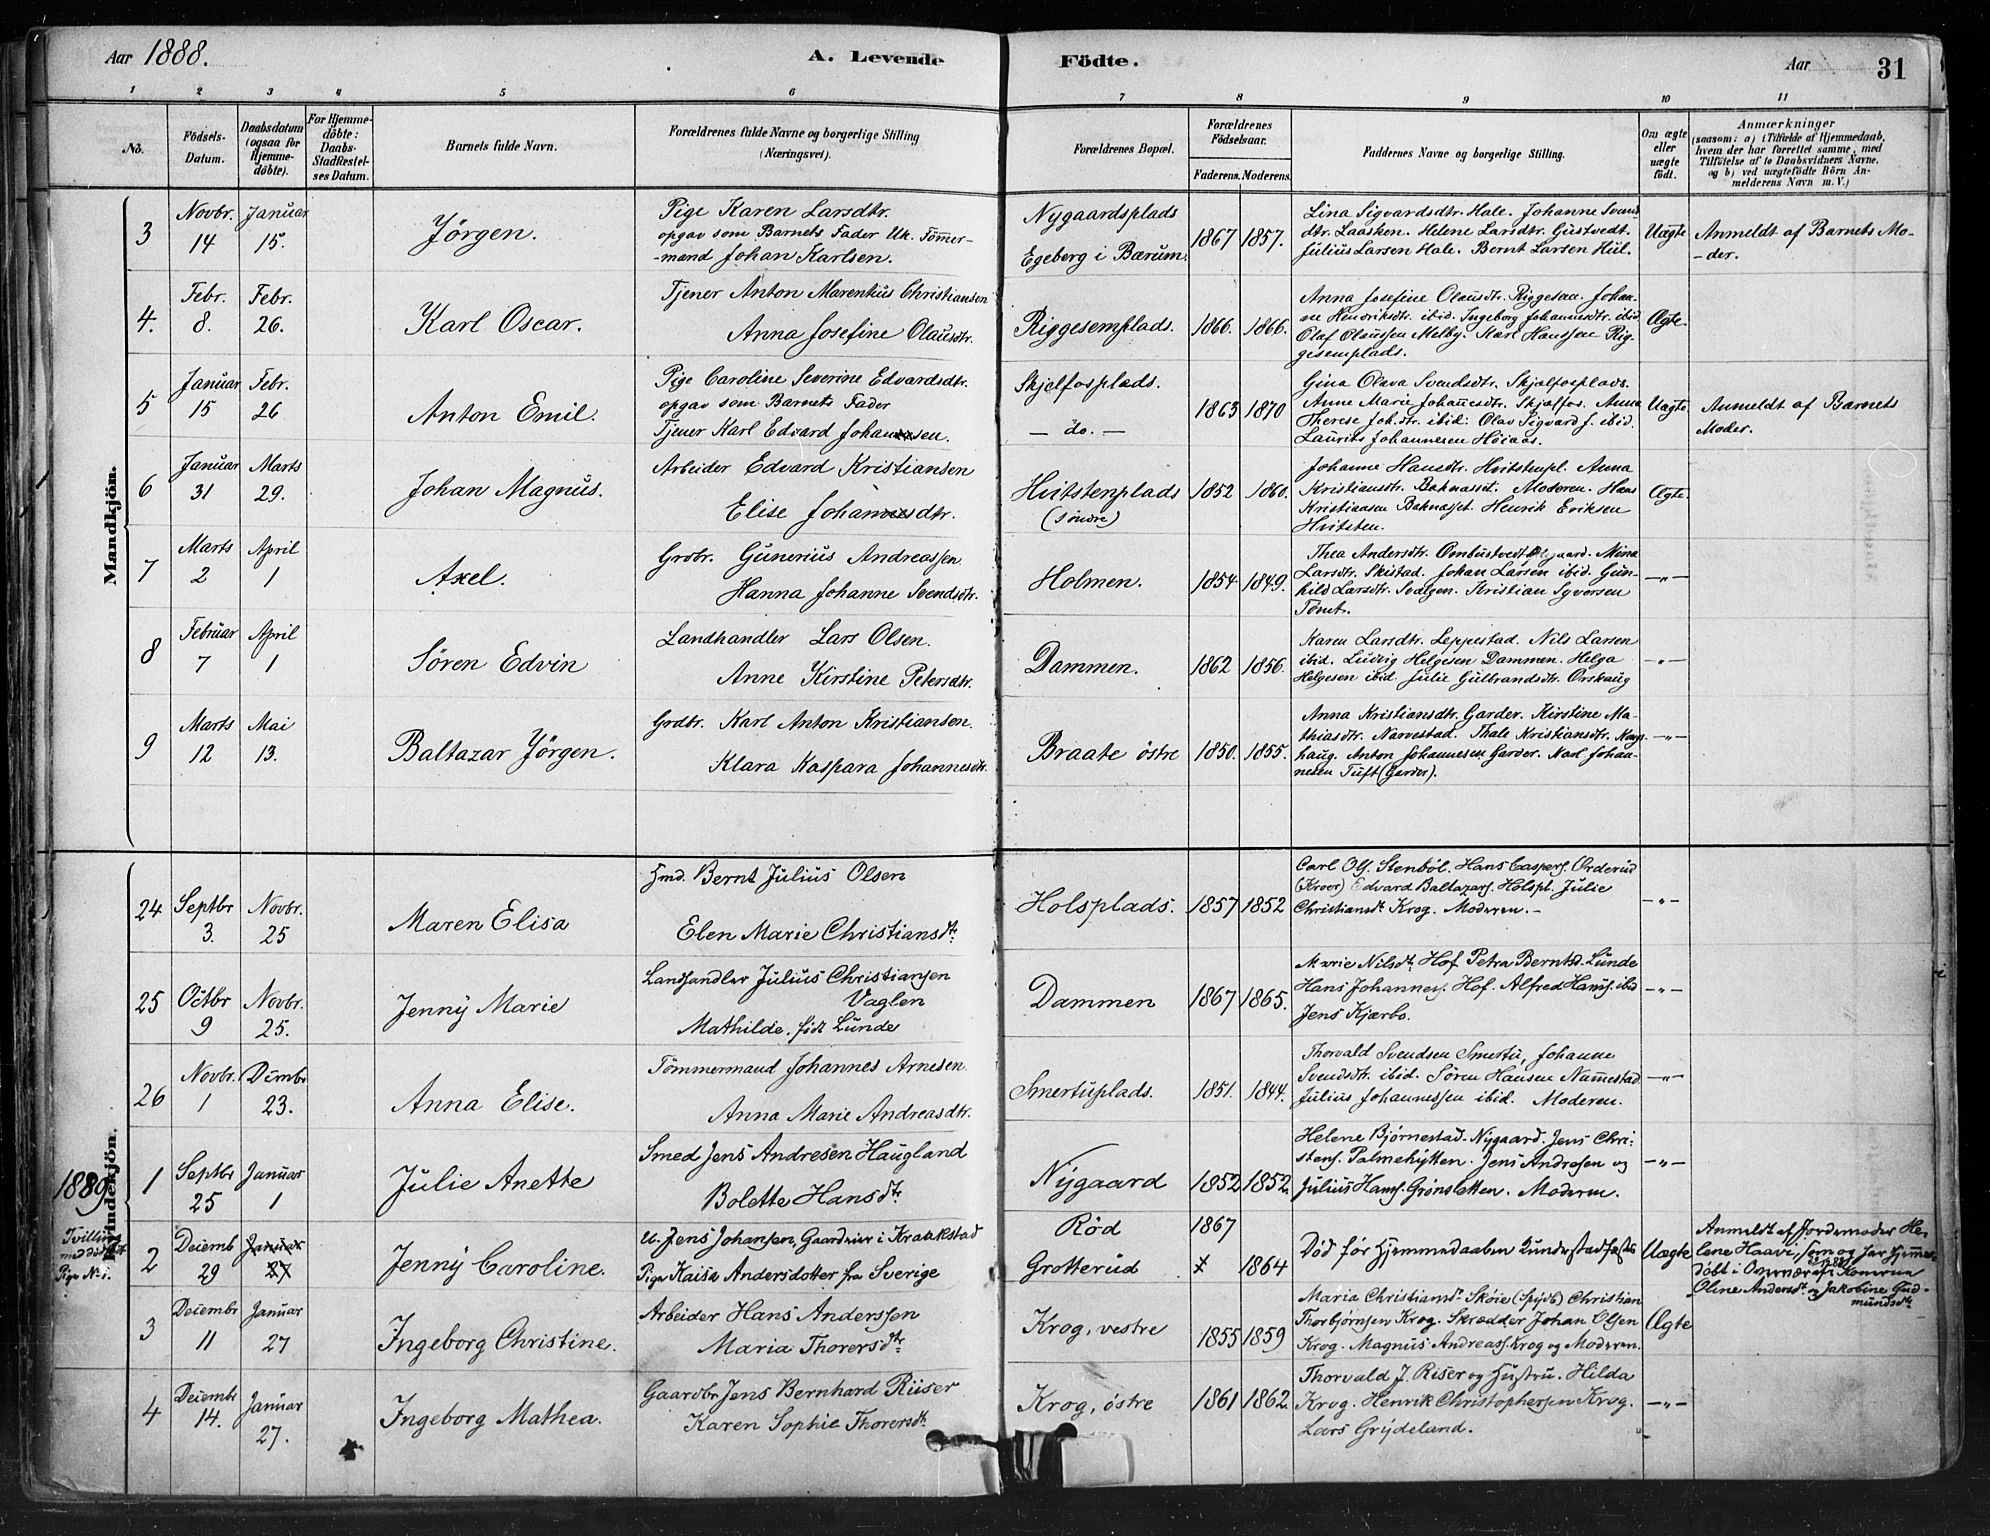 Aar 1888.
A. Levende
Födte.
Aar
31
1 2 3 4 5 6 7 8 9 10 11
No.
Födsels-
Datum.
Daabsdatum
(ogsaa for
Hjemme-
döbte).
For Hjemme-
döbte:
Daabs-
Stadfæstel-
ses Datum.
Barnets fulde Navn.
Forældrenes fulde Navne og borgerlige Stilling
(Næringsvei).
Forældrenes Bopæl.
Forældrenes
Födselsaar.
Faderens. Moderens.
Faddernes Navne og borgerlige Stilling.
Om ægte
eller
uægte
födt.
Anmærkninger
(saasom: a) i Tilfælde af Hjemmedaab,
hvem der har forrettet samme, med
Tilföielse af to Daabsvidners Navne,
og b) ved uægtefödte Börn An-
melderens Navn m. V.)
Mandkjön.
3
Novbr.
14
Januar
15.
Jörgen.
Pige Karen Larsdtr.
opgav som Barnets Fader Uk. Tömer-
-mand Johan Karlsen.
Nygaardsplads
Egeberg i Bærum
1867 1857.
Lina Sigvardsdtr. Hale. Johanne Svends
dtr. Laasken. Helene Larsdtr. Gustvedt.
Julius Larsen Hale. Bernt Larsen Hul.
Uægte
Anmeldt af Barnets Mo-
-der.
4.
Febr.
8.
Febr.
26.
Karl Oscar.
Tjener Anton Marenkus Christiansen
Anna Josefine Olausdtr.
Riggesemplads.
1866. 1866.
Anna Josefine Olausdtr. Riggesen. Johan-
ne Hendriksdtr. ibid. Ingeborg Johannesdtr. ibid
Olaf Olaussen Melby. Karl Hanssen Rig-
gesemplads.
Ægte.
5
Januar
15
Febr.
26
Anton Emil.
Pige Caroline Severine Edvardsdtr.
opgav som Barnets Fader
Tjener Karl Edvard Johansen.
Skjelfosplads.
— do. —
1863 1870
Gina Olava Svendsdtr. Skjelfosplads.
Anne Marie Johannesdtr. Skjelfos. Anna
Therese Joh.dtr. ibid. Olav Sigvard J. ibid.
Laurits Johannesen Höiaas.
Uægte
Anmeldt af Barnets
Moder.
6
Januar
31
Marts
29.
Johan Magnus.
Arbeider Edvard Kristiansen
Elise Johannesdtr.
Hvitstenplads
(söndre)
1852 1860.
Johanne Hansdtr. Hvitstenpl. Anna
Kristiansdtr. Baknasset. Moderen. Hans
Kristiansen Baknasset. Henrik Eriksen
Hvitsten.
Ægte.
7
Marts
2
April
1
Axel.
Grdbr. Gunerius Andreassen
Hanna Johanne Svendsdtr.
Holmen.
1854. 1849.
Thea Andersdtr. Mina
Larsdtr. Skistad. Johan Larsen ibid. Gun-
hild Larsdtr. Svalgen. Kristian Syversen
Tomt.
—"—
8
Februar
7
April
1
Sören Edvin
Landhandler Lars Olsen.
Anne Kirstine Petersdtr.
Dammen.
1862 1856.
Karen Larsdtr. Leppestad. Nils Larsen
ibid. Ludvig Helgesen Dammen. Helga
Helgesen ibid Julie Gulbrandsdtr. Orskaug
—"—
9
Marts
12
Mai
13.
Baltazar Jörgen.
Grdbr. Karl Anton Kristiansen.
Klara Kaspara Johannesdtr.
Braate östre
1850. 1855.
Anna Kristiansdtr. Garder. Kirstine Ma-
thiasdtr. Narvestad. Thale Kristiansdtr. Kongs-
haug. Anton Johannesen Garder. Karl Johan-
nesen Tuft (Garder).
—"—
Kvindekjön.
24
Septbr
3.
Novbr.
25
Maren Elisa
Hmd. Bernt Julius Olsen
Elen Marie Christiansdtr
Holsplads.
1857 1852
Carl Ols. Stenböl. Hans Caspers. Orderud
(Kroer) Edvard Baltazars. Holspl. Julie
Christiansdtr Krog. Moderen.—
—"—
25
Octbr
9
Novbr.
25.
Jenny Marie
Landhandler Julius Christiansen
Vaglen
Mathilde, født Lunde
Dammen
1867 1865.
Marie Nilsdtr Hof Petra Berntsd. Lunde
Hans Johannes. Hof. Alfred Hans. ibid
Jens Kjærbo.
—"—
26
Novbr.
1
Dcmbr
23.
Anna Elise.
Tömmermand Johannes Arnesen.
Anna Marie Andreasdtr.
Smertuplads.
1851. 1844.
Thorvald Svendsen Smertu, Johanne
Svendsdtr. ibid. Sören Hansen Namestad
Julius Johannessen ibid. Moderen.
—"—
1889
1
Septbr
25
Januar
1
Julie Anette
Smed Jens Andresen Haugland
Bolette Hansdtr
Nygaard
1852 1852.
Helene Bjørnestad. Nygaard. Jens Chri-
stens. Palmehytten. Jens Andresen og
Julius Hans. Grønsletten. Moderen.
—"—
Tvilling
med
Pige No 1.
2
Decemb
29
Januar
27
Jenny Caroline.
U. Jens Johansen, Gaardeier i Kraakstad
Pige Kaisa Andersdotter fra Sverige
Rød
Grotterud
1867
1864
Død før Hjemmedaaben Kunde stadfæstes
Uægte
Anmeldt af Jordemoder He-
lene Haavi, som og har hjemme-
døbt i Overvær af Konerne
Oline Andersdtr og Jakobine Gud-
mundsdtr
3
Decembr
11
Januar
27
Ingeborg Christine.
Arbeider Hans Anderssen
Maria Thorersdtr
Krog, vestre
1855 1859
Maria Christiansdtr Skøie (Spydb) Christian
Thorbjørnsen Krog. Skrædder Johan Olsen
Krog. Magnus Andreass. Krog og Moderen.
Ægte
4
Decembr
14.
Januar
27.
Ingeborg Mathea.
Gaardbr. Jens Bernhard Riiser
Karen Sophie Thorersdtr
Krog, østre
1861 1862.
Thorvald J. Riser og Hustru. Hilda
Krog. Henrik Christophersen Krog.
Lars Grydeland.
—"—